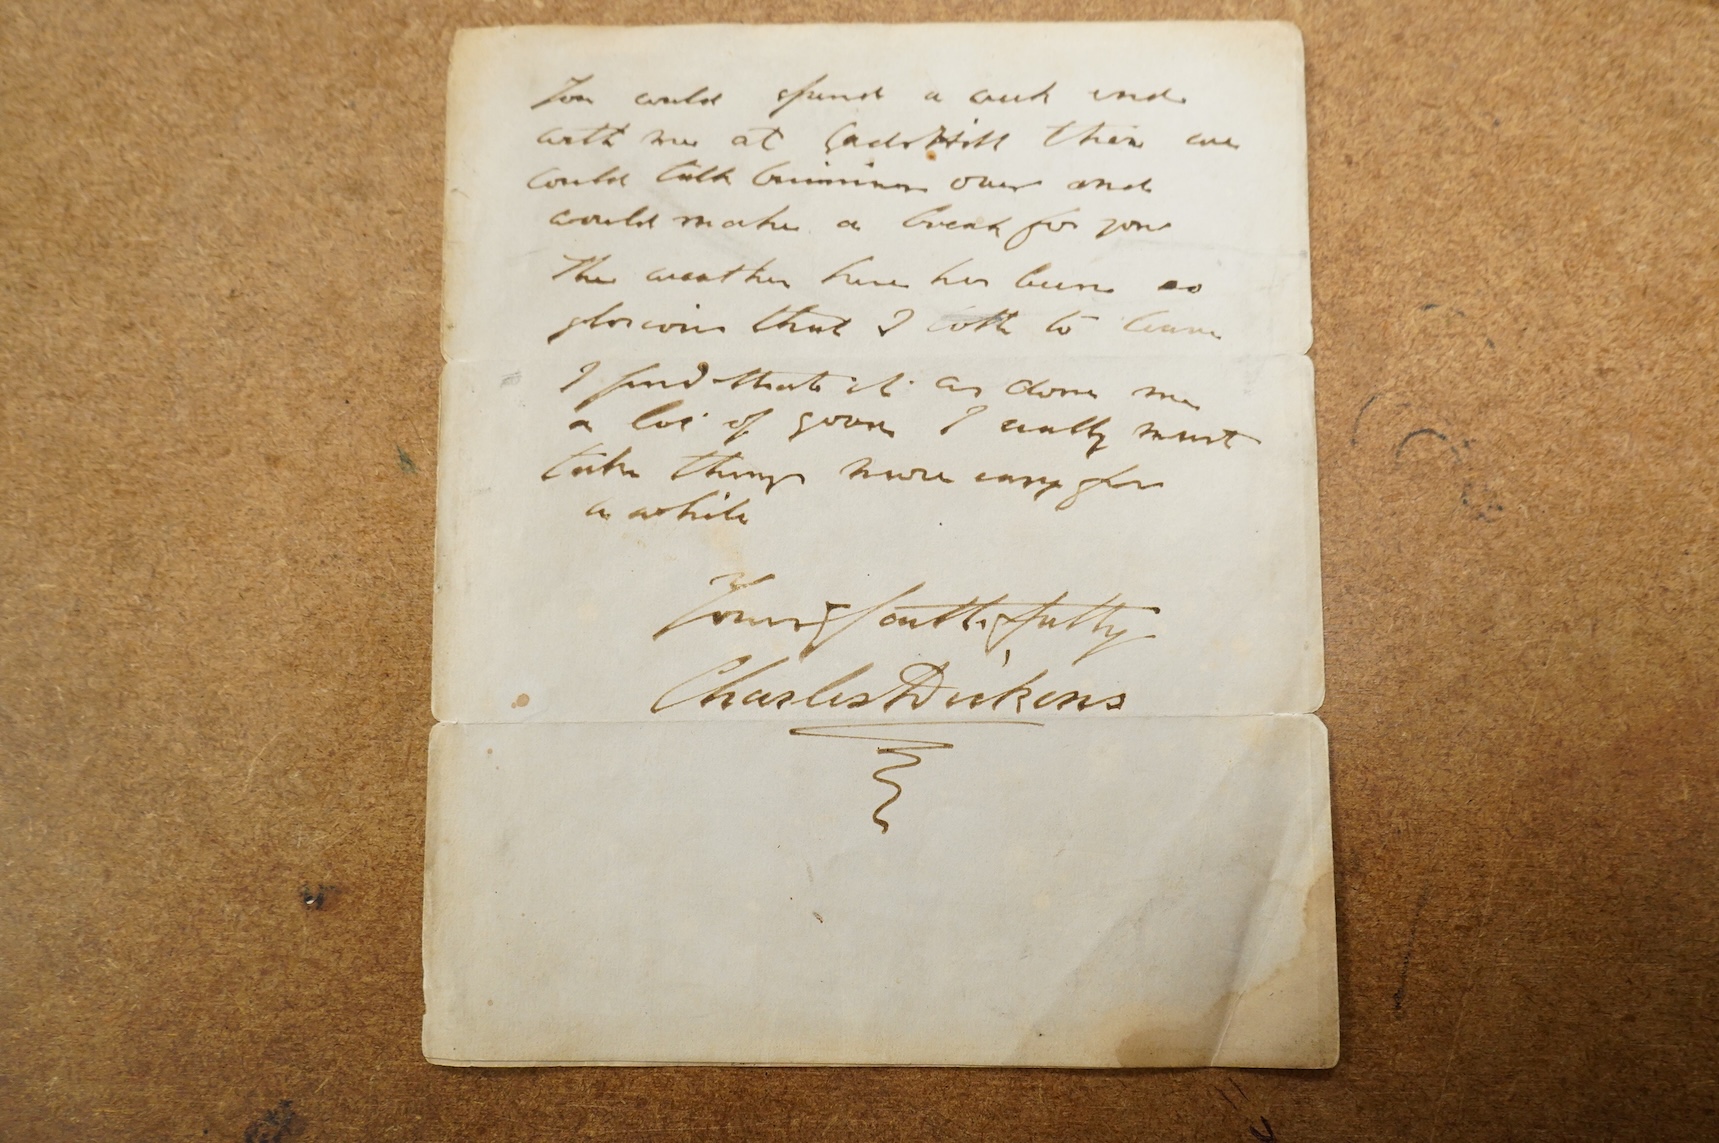 You could spend a week end
with me at Gads Hill then we
could talk business over and
would make a break for you
The weather here has been so
glorious that I loth to leave
I find that it as done me
a lot of good I really must
take things more easy for
a while
Yours faithfully
Charles Dickens